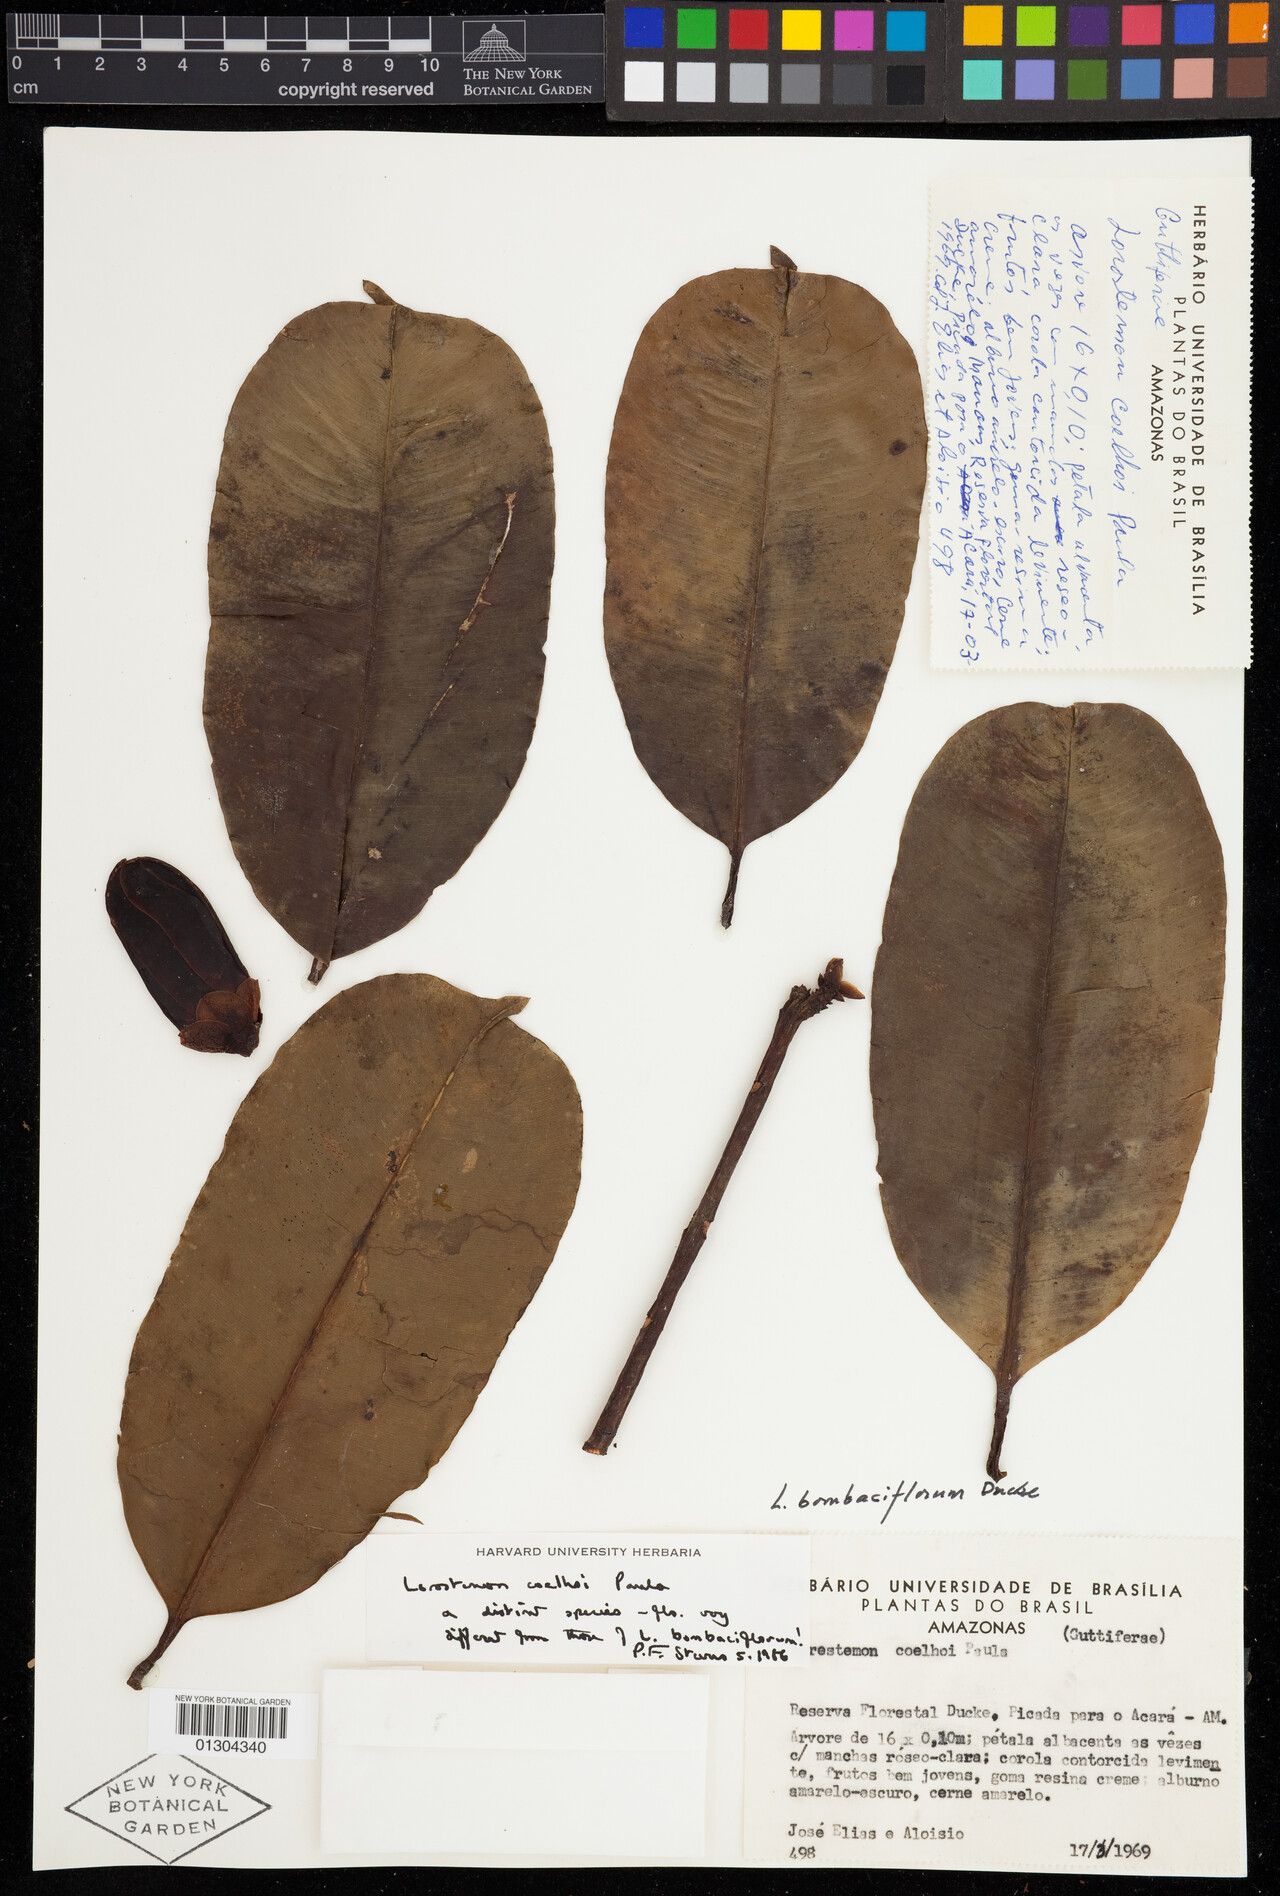 0 1 2 3 4 5 6 7 8 9 10
cm
copyright reserved
THE NEW YORK
BOTANICAL GARDEN
HERBÁRIO UNIVERSIDADE DE BRASÍLIA
PLANTAS DO BRASIL
AMAZONAS
Guttiferae
Lorostemon coelhoi Paula
Arvore 16 x 0,10; pétala albacenta,
as vezes com manchas roseo-
clara, corola contorcida levimente;
frutos bem jovens; goma-resina
creme; alburno amarelo-escuro, cerne
amarelo, Manaus, Reserva florestal
Ducke, Picada para o Acará, 17-03
1969, Col. J. Elias et Aloisio 498
L. bombaciflorum Ducke
HARVARD UNIVERSITY HERBARIA
Lorostemon coelhoi Paula
a distinct species - fls. very
different from those of L. bombaciflorum!
P.F. Stevens 5.1986
BÁRIO UNIVERSIDADE DE BRASÍLIA
PLANTAS DO BRASIL
AMAZONAS
(Guttiferae)
rostemon coelhoi Paula
Reserva Florestal Ducke, Picada para o Acará - AM.
Árvore de 16 x 0,10m; pétala albacenta as vêzes
c/ manchas róseo-clara; corola contorcida levimen
te, frutos bem jovens, goma resina creme; alburno
amarelo-escuro, cerne amarelo.
José Elias e Aloisio
498 17/3/1969
NEW YORK BOTANICAL GARDEN
01304340
NEW YORK
BOTANICAL
GARDEN